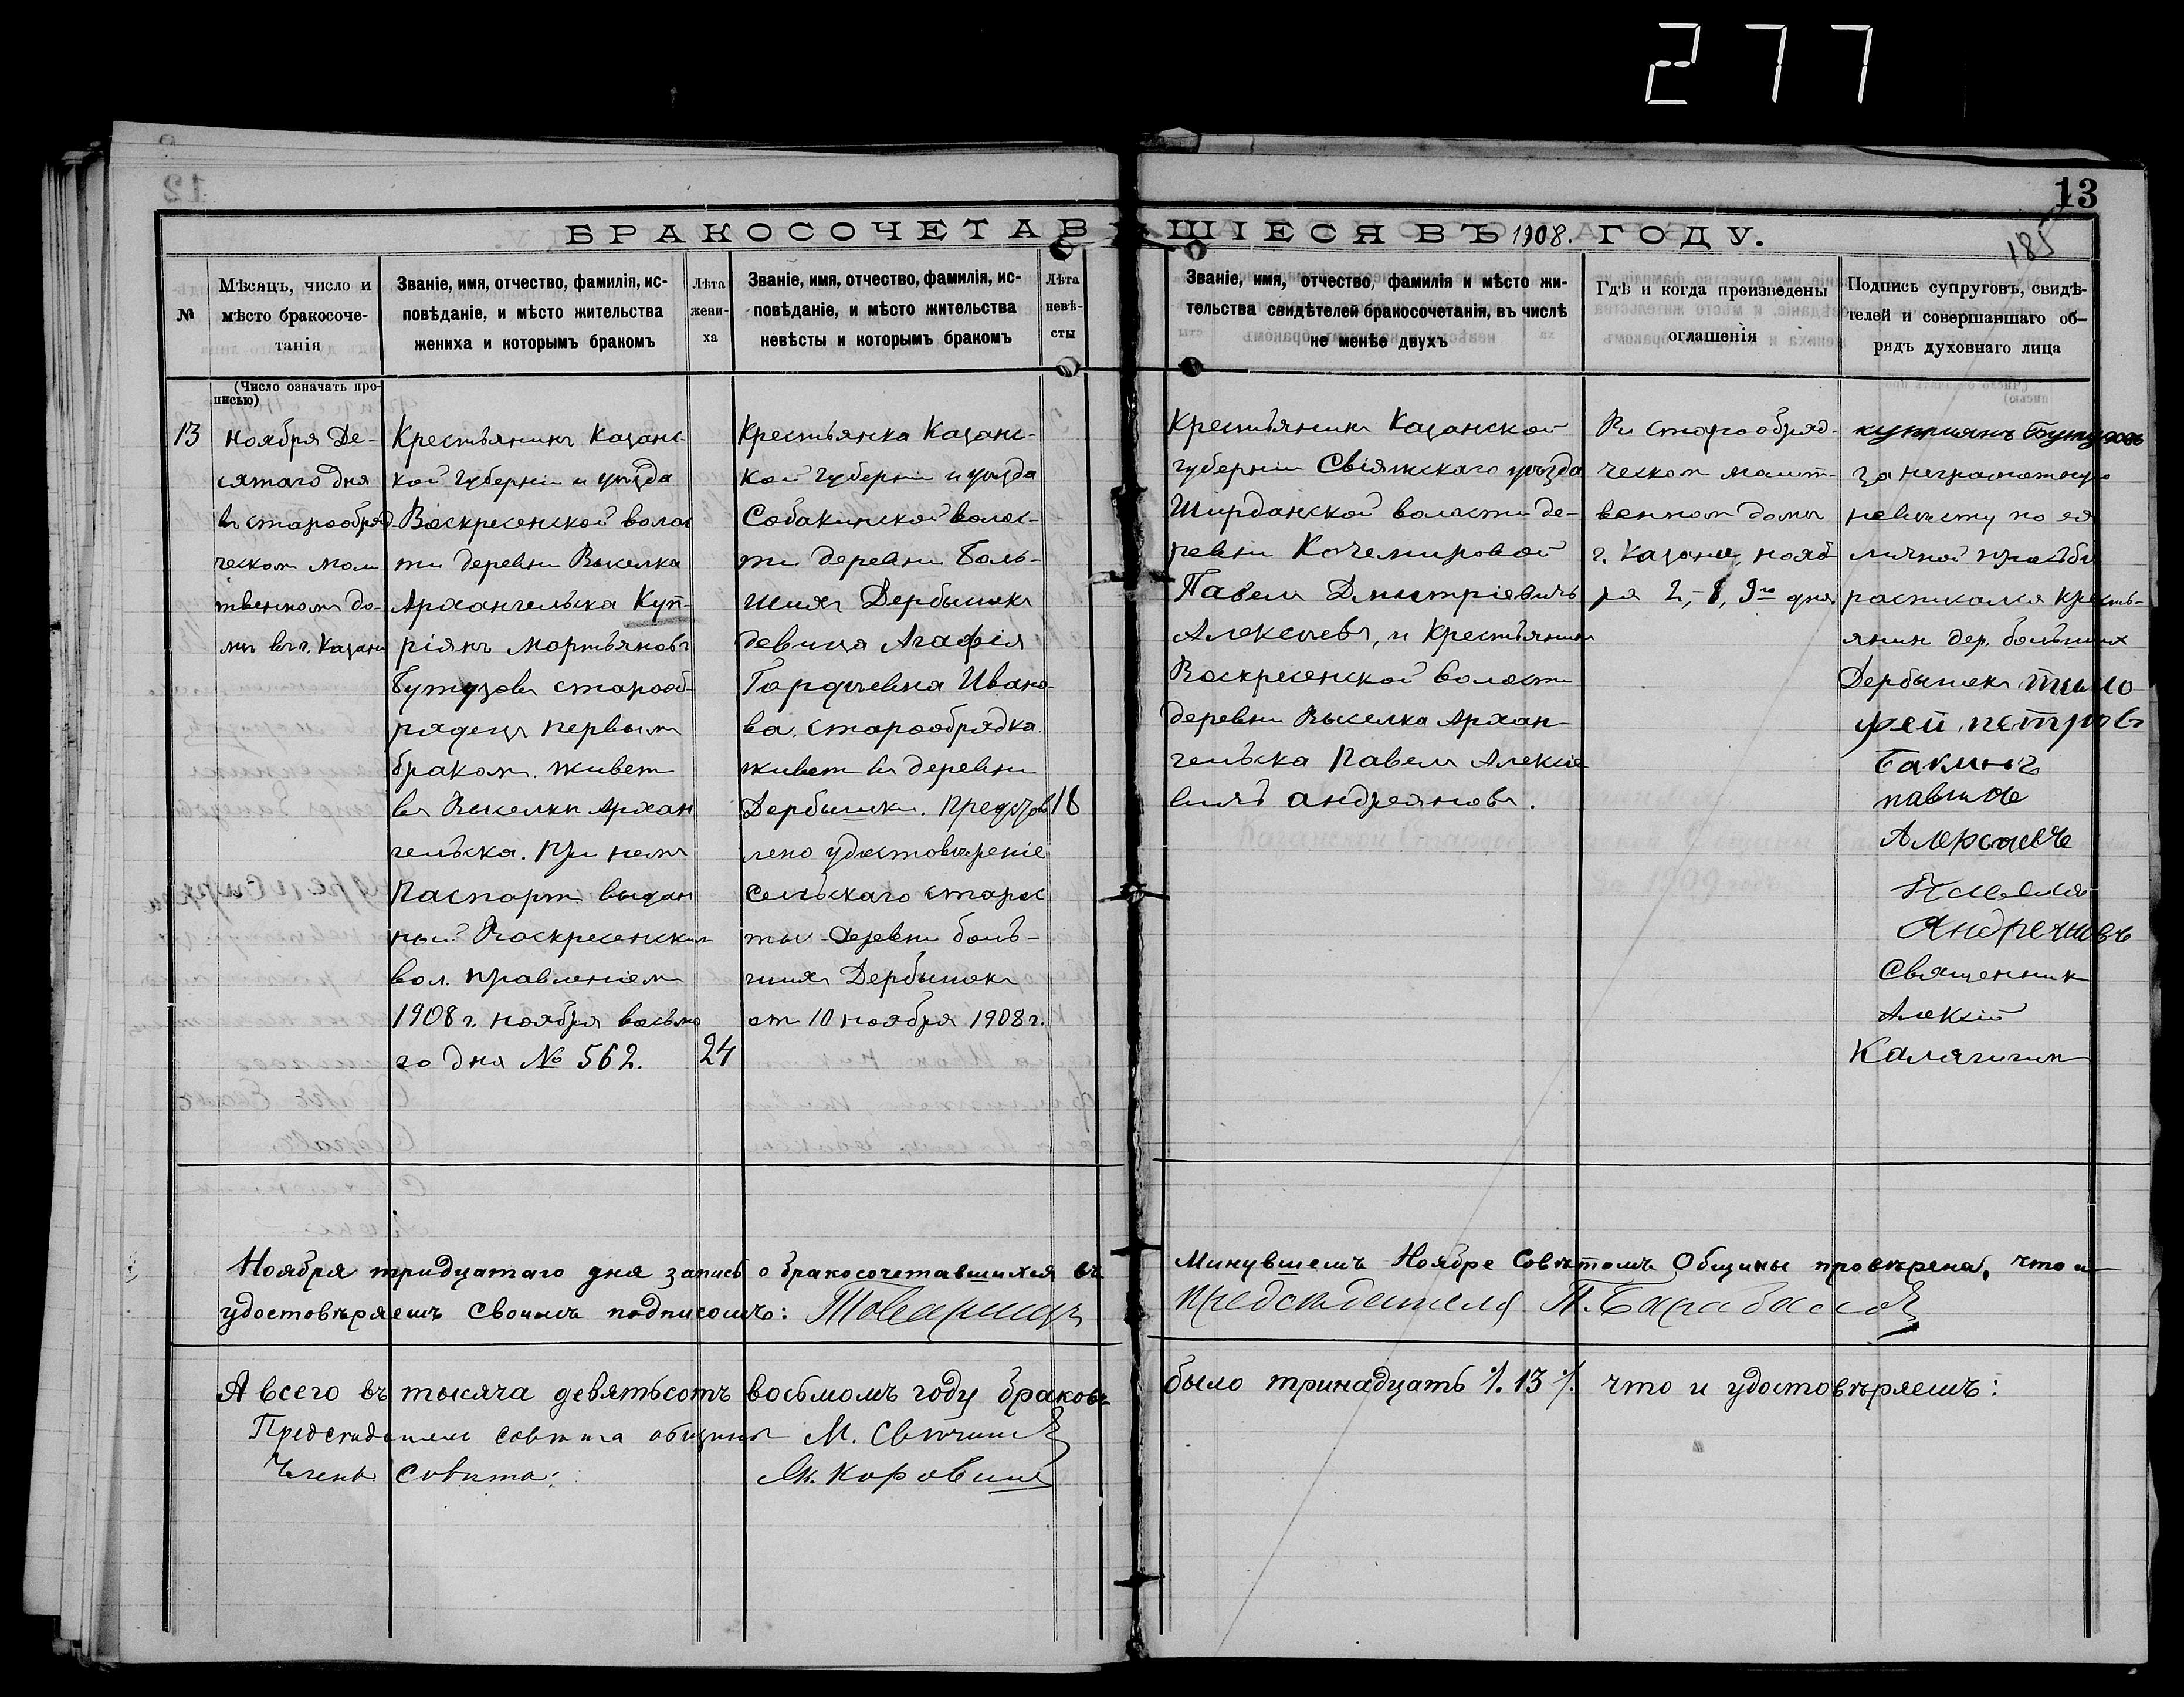 277
13
185
БРАКОСОЧЕТАВШІЕСЯ ВЪ 1908. ГОДУ.
№
Мѣсяцъ, число и
мѣсто бракосоче-
танія
Званіе, имя, отчество, фамилія, ис-
повѣданіе, и мѣсто жительства
жениха и которымъ бракомъ
Лѣта
жени-
ха
Званіе, имя, отчество, фамилія, ис-
повѣданіе, и мѣсто жительства
невѣсты и которымъ бракомъ
Лѣта
невѣ-
сты
Званіе, имя, отчество, фамилія и мѣсто жи-
тельства свидѣтелей бракосочетанія, въ числѣ
не менѣе двухъ
Гдѣ и когда произведены
оглашенія
Подпись супруговъ, свидѣ-
телей и совершавшаго об-
рядъ духовнаго лица
(Число означать про-
писью)
13
ноября Де-
сятаго дня
въ старообряд-
ческом моли
твенномъ до-
мѣ въ г. Казани
Крестьянинъ Казанс-
кой губерніи и уѣзда
Воскресенской волос
ти деревни Выселка
Архангельска Куп-
ріянъ Мартьяновъ
Бутузовъ старооб-
рядецъ первым
браком. живет
въ Выселкѣ Архан
гельска. При немъ
Паспортъ выдан
ный Воскресенским
вол. правленіем
1908 г. ноября восьмо
го дня № 562.
24
Крестьянка Казанс-
кой губерніи и уѣзда
Собакинской волос-
ти деревни Боль-
шихъ Дербышекъ
девица Агафія
Гордѣевна Ивано-
ва. старообрядка.
живет въ деревни
Дербышки. Предъяв
лено удостовѣреніе
Сельскаго старос
ты деревни боль-
шихъ Дербышекъ
от 10 ноября 1908 г.
18
Крестьянинъ Казанской
губерніи Свіяжскаго уѣзда
Ширданской волости де-
ревни Кочемировой
Павелъ Дмитріевичъ
Алексѣевъ, и Крестьянинъ
Воскресенской волости
деревни Выселка Архан-
гельска Павелъ Алексѣе
вичъ Андреяновъ.
Въ старообряд-
ческом молит-
венном домѣ
г. Казани, нояб
ря 2, 8, 9го дня
куприянъ Бутузовъ
за неграмотную
невѣсту по ея
личной просьбѣ
расписался кресть-
янин дер. больших
Дербышек тимо
фей петровъ
павил
Алексѣевъ
Павелъ
Андреяновъ
Священник
Алексій
Калягинъ
Ноября тридцатаго дня запись о бракосочетавшихся въ минувшемъ Ноябре Совѣтомъ Общины проверена, что и
удостовѣряемъ своимъ подписомъ: Товарищъ председателя П. Барабасов
А всего въ тысяча девятьсотъ восьмомъ году браковъ было тринадцать /.13./ что и удостовѣряемъ:
Председатель совѣта общины М. Свѣчин
Члены Совѣта: Як. Коровин